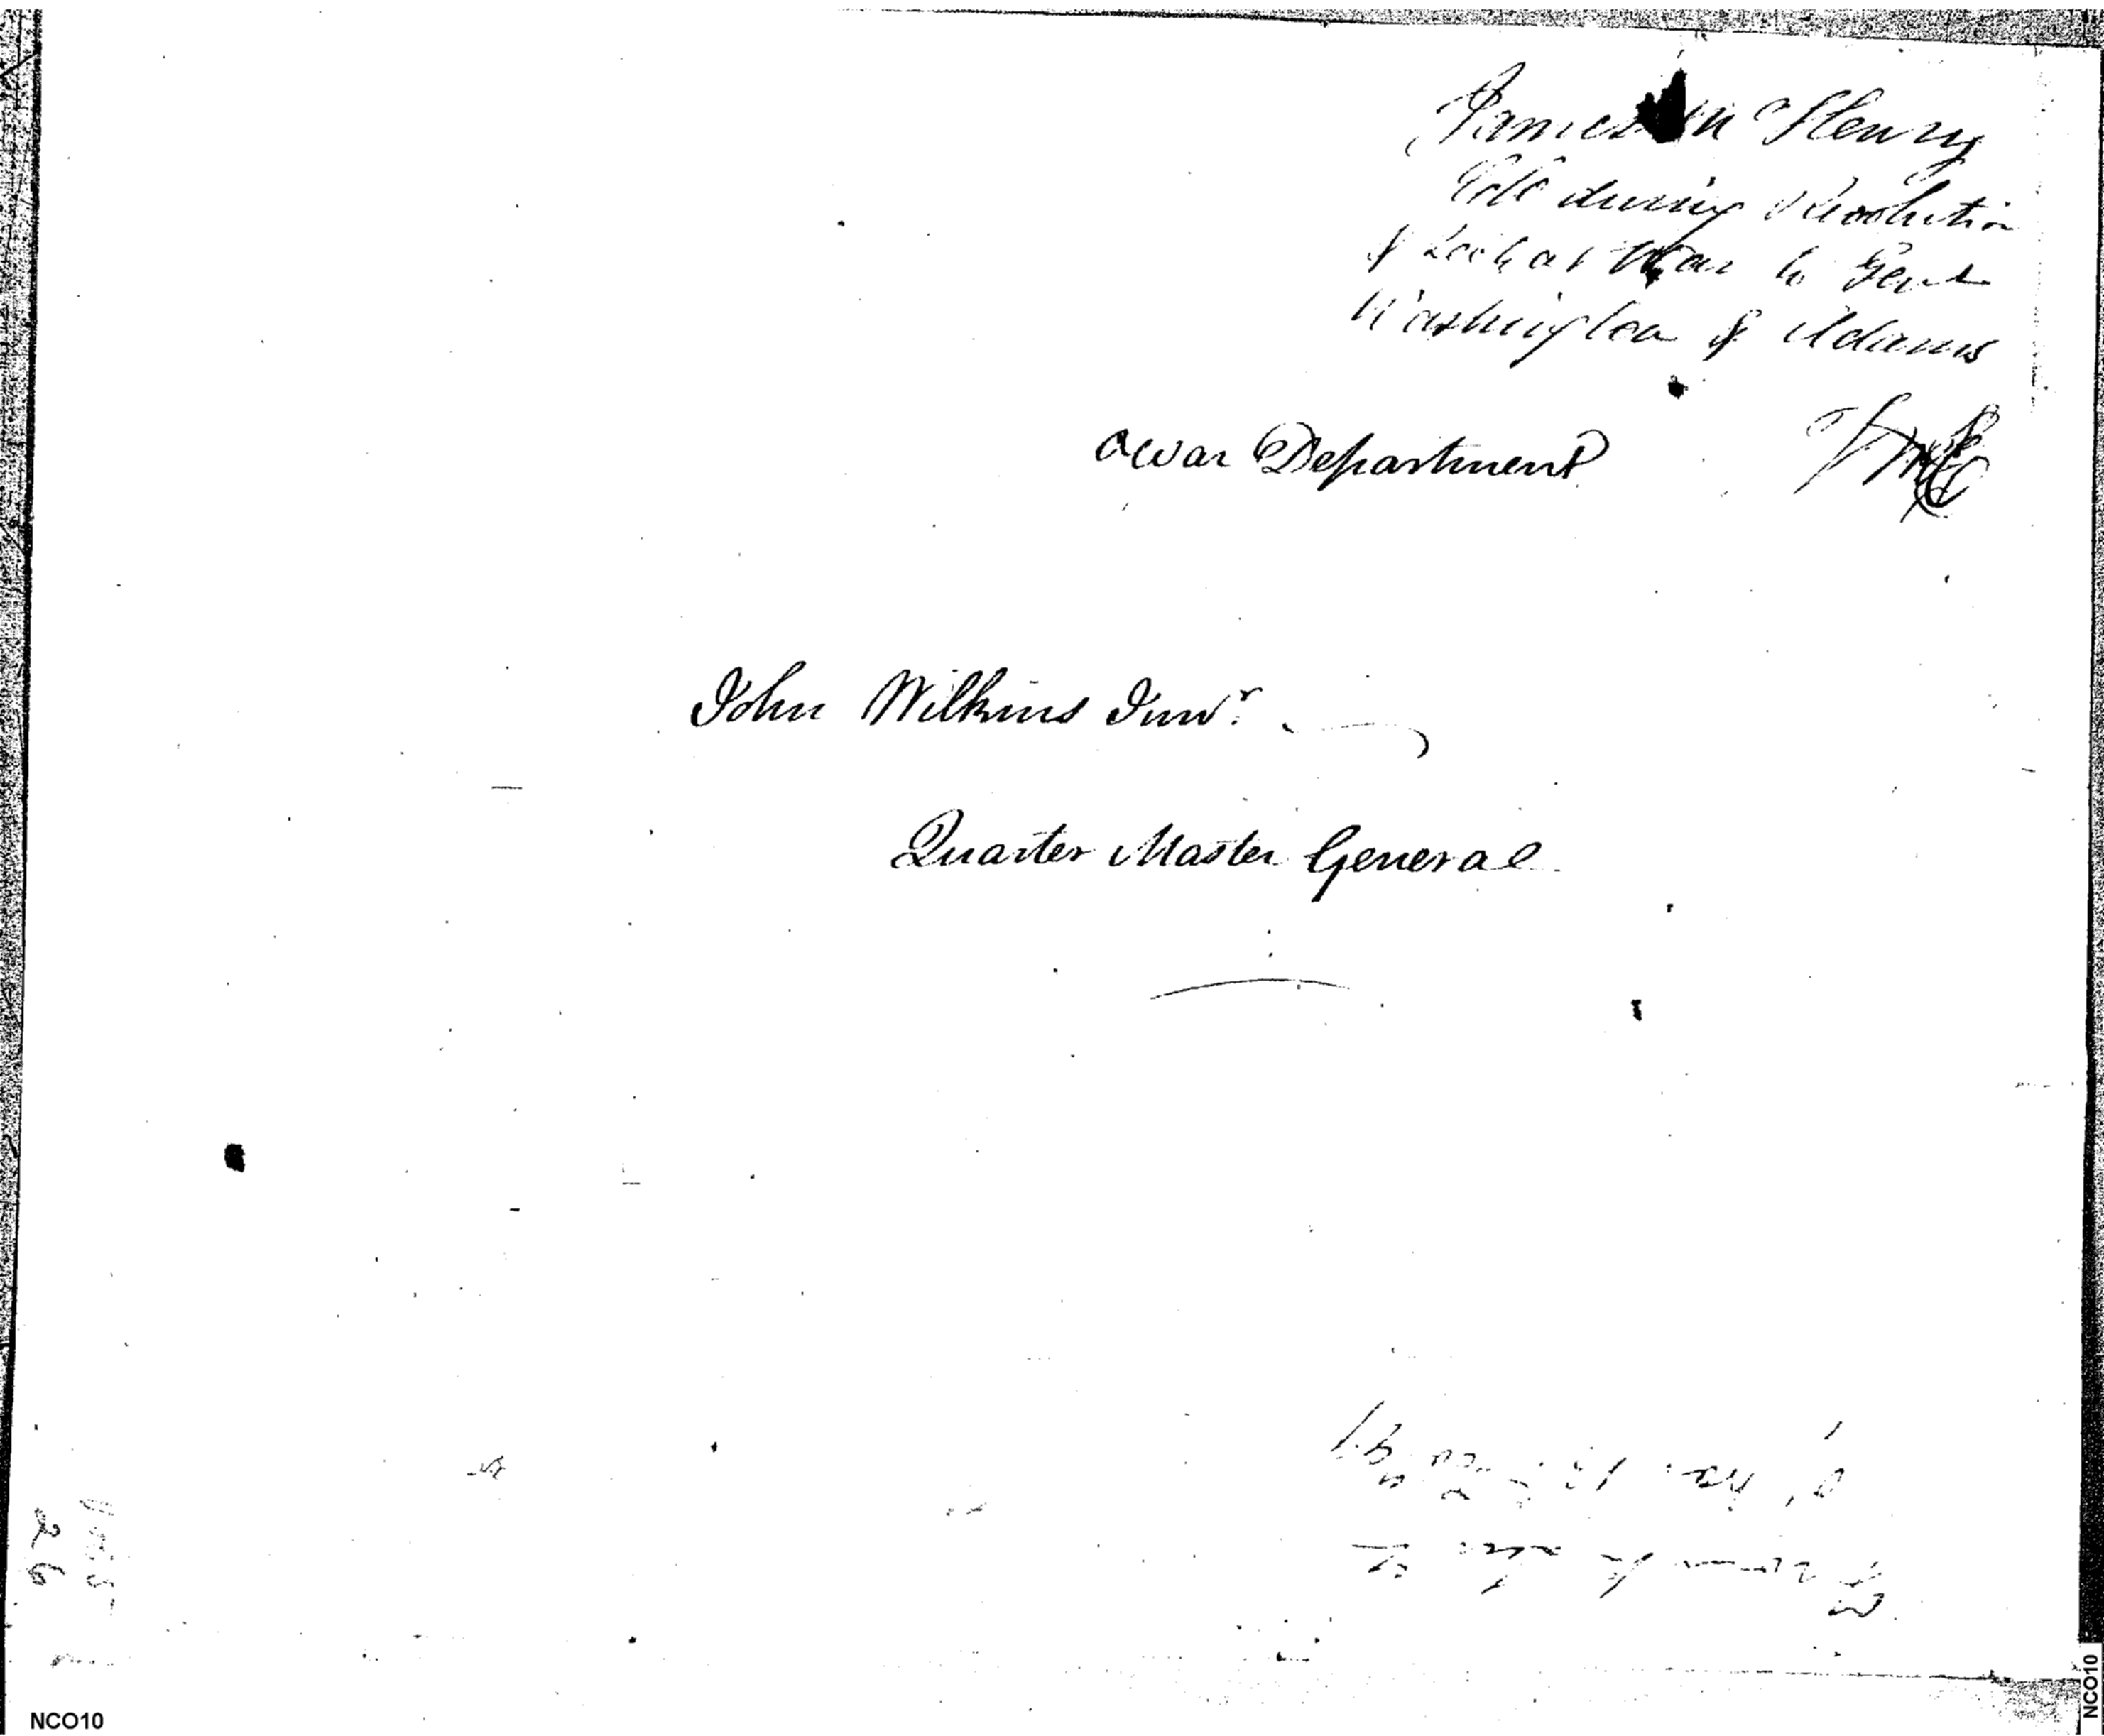 James McHenry
Coll during Revolution
& Secty at War to Genl
Washington & Adams
War Department
John Wilkins Junr.
Quarter Master General
26
NCO10
NCO10